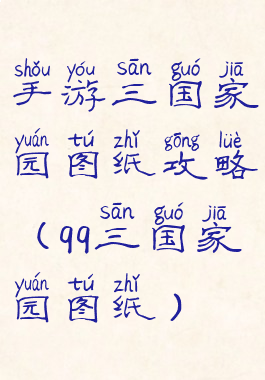 shǒu yóu sān guó jiā
手游三国家
yuán tú zhǐ gōng lüè
园图纸攻略
sān guó jiā
（99三国家
yuán tú zhǐ
园图纸）